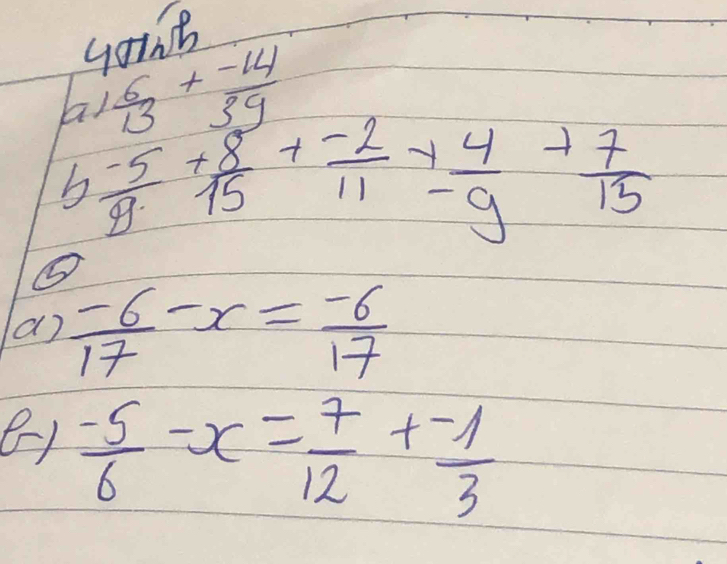 4 tính
a) 6/13 + -14/39
b -5/9 + 8/15 + -2/11 + 4/-9 + 7/15
⑤
a) -6/17 - x = -6/17
b) -5/6 - x = 7/12 + -1/3